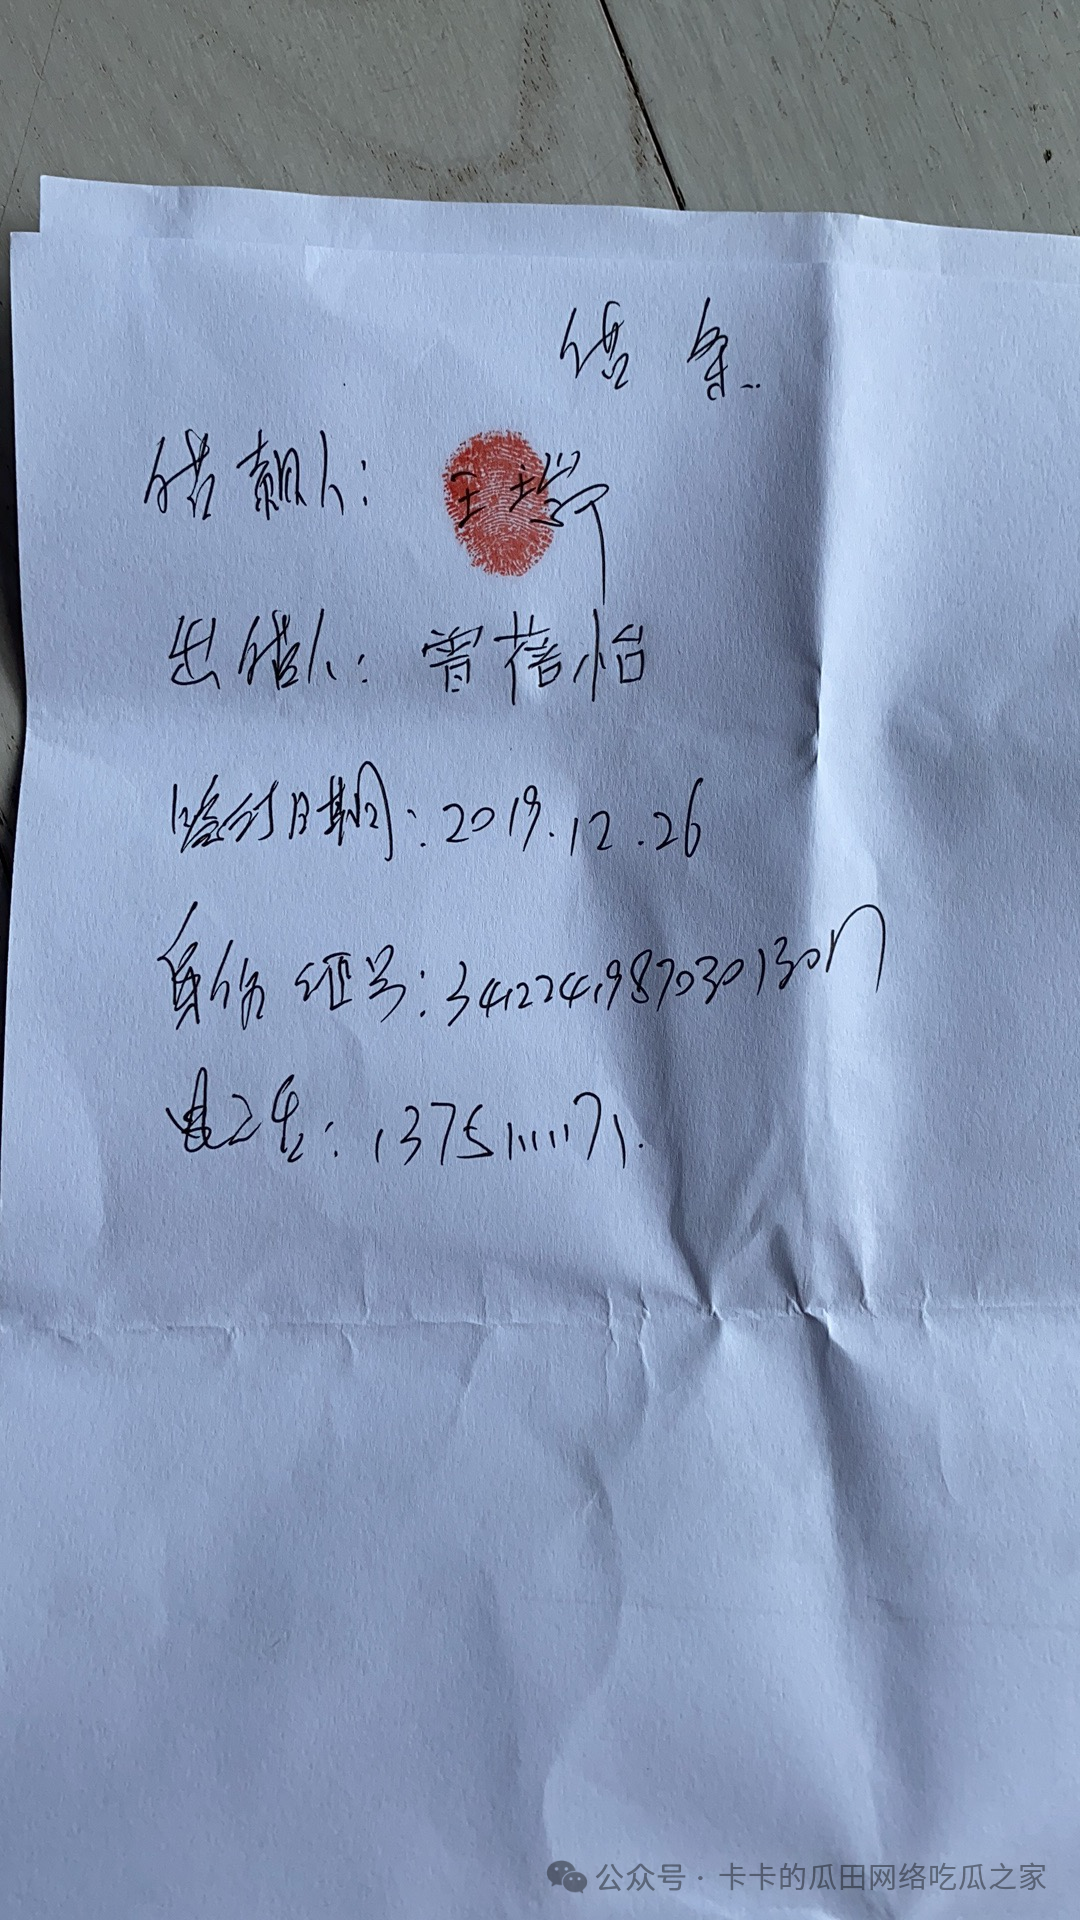 借条
借款人：王瑞
出借人：曾蓓怡
给付日期：2019.12.26
身份证号：
电话：13751111171
公众号·卡卡的瓜田网络吃瓜之家